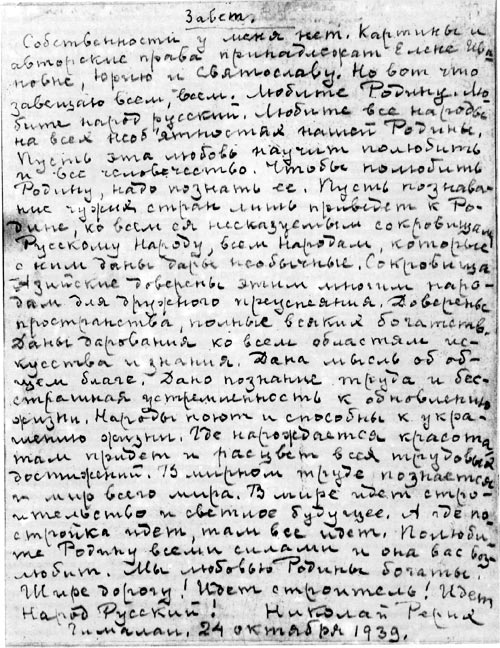 Завет.
Собственности у меня нет. Картины и
авторские права принадлежат Елене Ива
новне, Юрию и Святославу. Но вот что
завещаю всем, всем. Любите Родину. Лю-
бите народ русский. Любите все народы
на всех необъятностях нашей Родины.
Пусть эта любовь научит полюбить
и все человечество. Чтобы полюбить
Родину, надо познать ее. Пусть познава-
ние чужих стран лишь приведет к Ро-
дине, ко всем ея несказуемым сокровищам.
Русскому народу, всем народам, которые
с ним даны дары необычные. Сокровища
азийские доверены этим многим наро-
дам для дружного преуспеяния. Доверены
пространства, полные всяких богатств.
Даны дарования ко всем областям ис-
кусства и знания. Дана мысль об об-
щем благе. Дано познание труда и бес-
страшная устремленность к обновлению
жизни. Народы поют и способны к укра-
шению жизни. Где нарождается красота
там придет и расцвет всея трудовых
достижений. В мирном труде познается
и мир всего мира. В мире идет стро-
ительство и светлое будущее. А где по-
стройка идет, там все идет. Полюби-
те Родину всеми силами и она вас воз-
любит. Мы любовью Родины богаты.
Шире дорогу! Идет строитель! Идет
Народ Русский! Николай Рерих
Гималаи. 24 октября 1939.